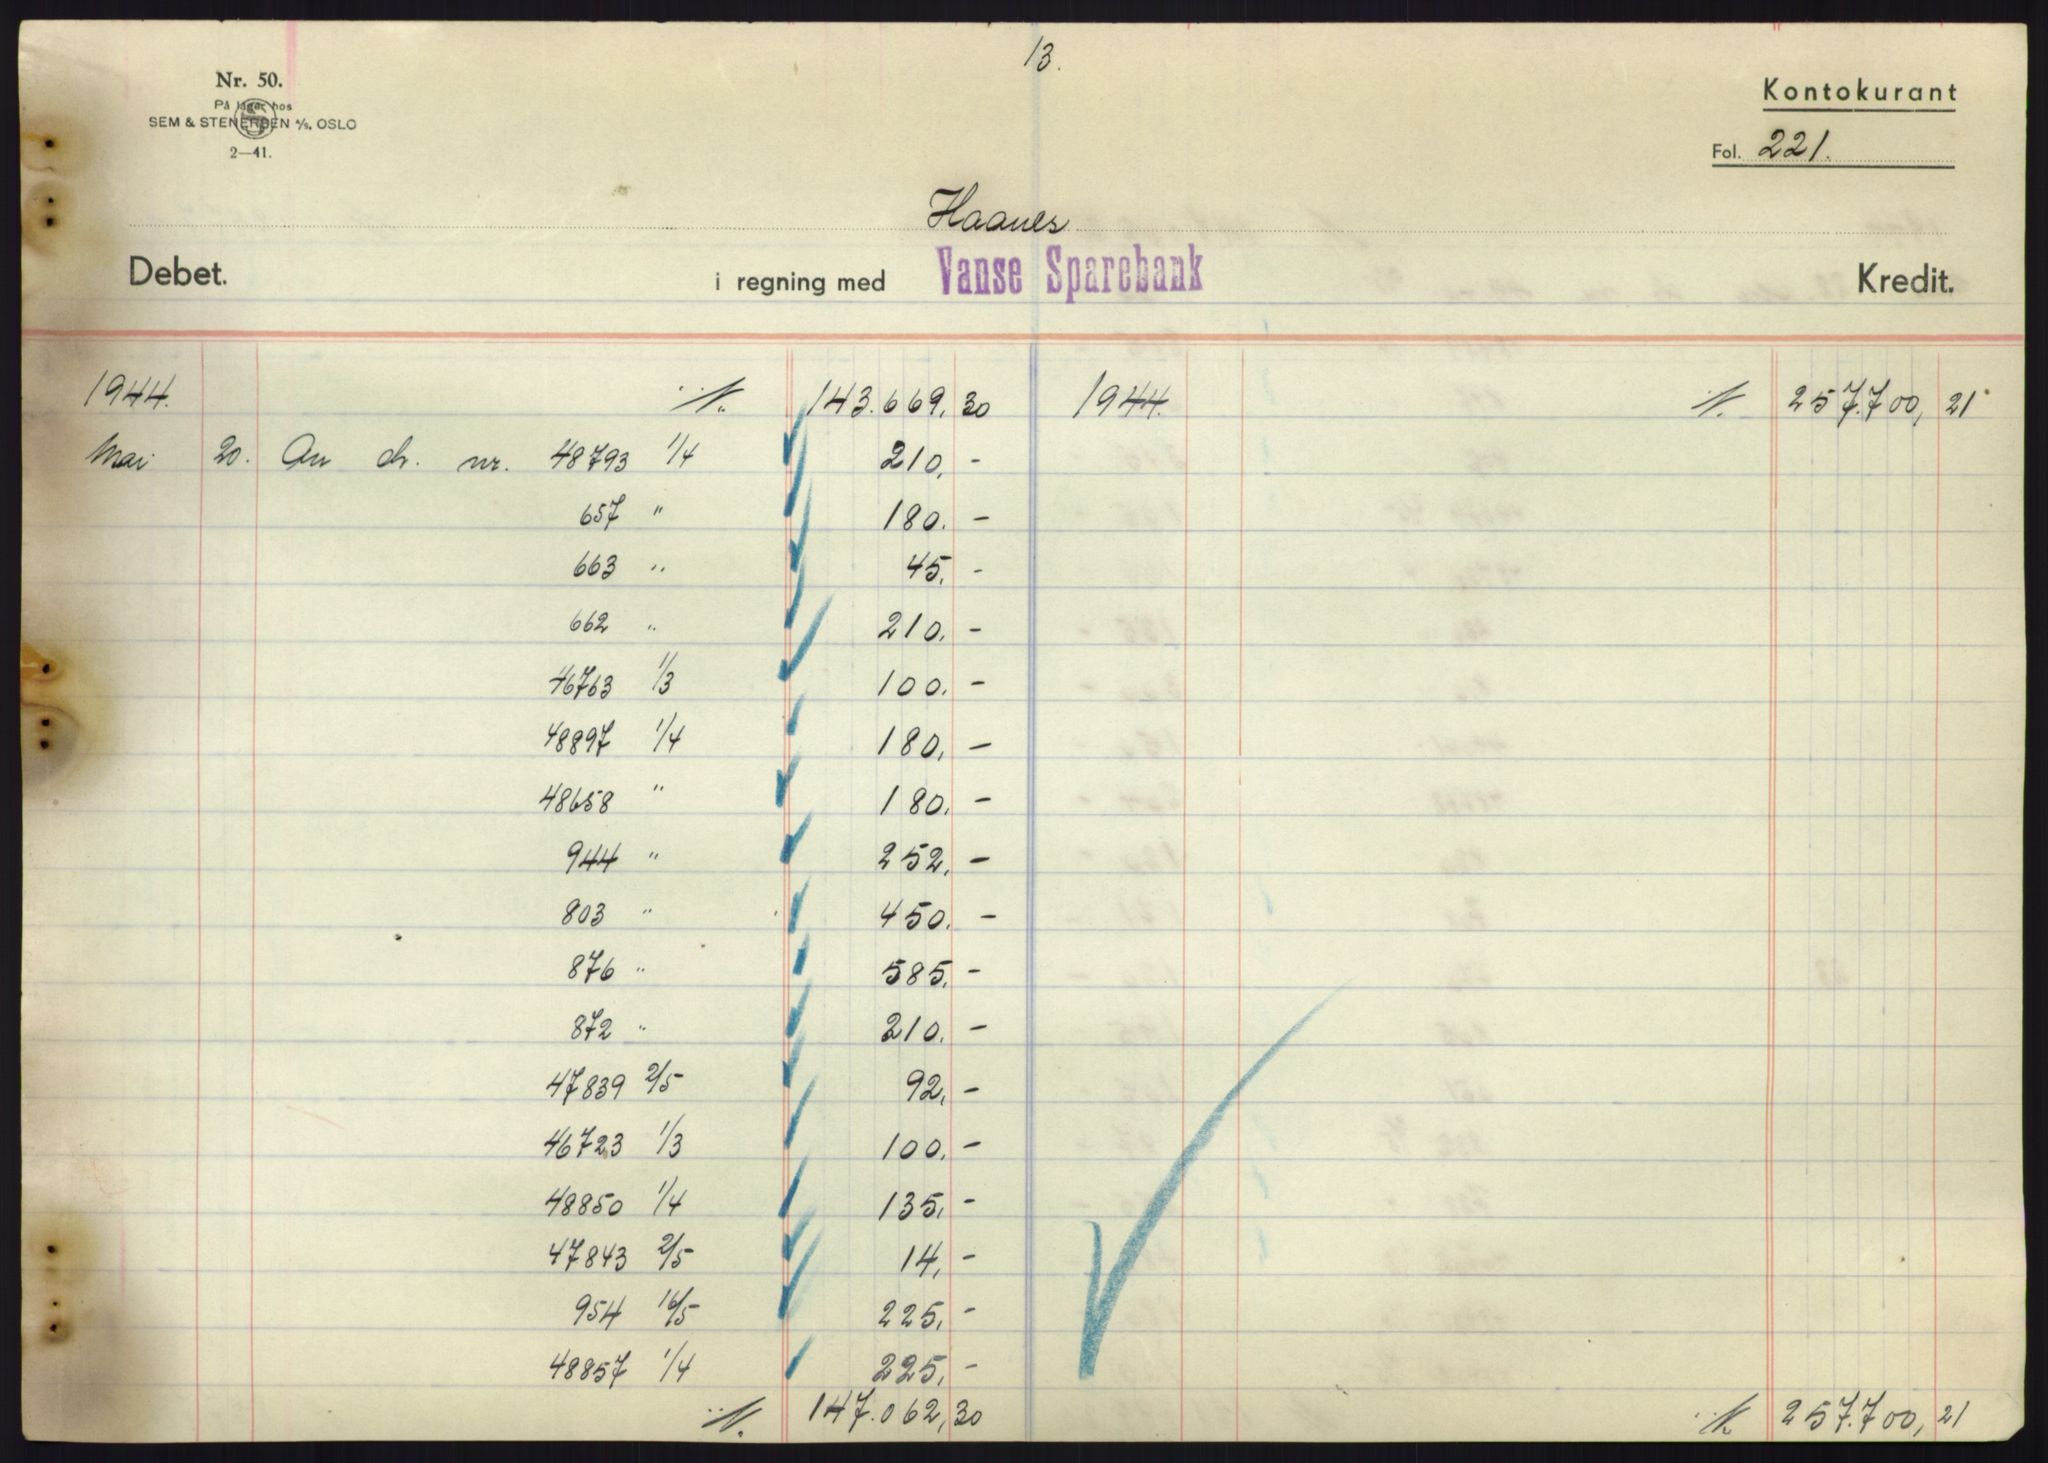 13.
Nr. 50.
På lager hos
SEM & STENERSEN A/S, OSLO
2—41.
Kontokurant
Fol. 221.
Haanes
Debet. i regning med Vanse Sparebank Kredit.
1944. 143.669,30 1944. 257.700,21
Mai 20. An ch. nr. 48793 1/4 210,-
657 " 180.-
663 " 45,-
662 " 210,-
46763 1/3 100.-
48897 1/4 180,-
48658 " 180,-
944 " 252,-
803 " 450.-
876 " 585,-
872 " 210.-
47839 2/5 92,-
46723 1/3 100.-
48850 1/4 135,-
47843 2/5 14,-
954 16/5 225,-
48857 1/4 225,-
147.062,30 257.700,21